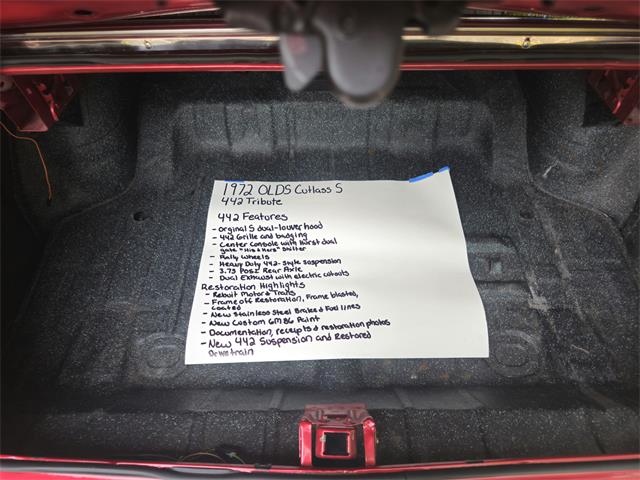 1972 OLDS Cutlass S
442 Tribute
442 Features
- orginal S dual-louver hood
- 442 Grille and badging
- Center console with Hurst dual
gate "His & Hers" Shifter
- Rally Wheels
- Heavy Duty 442-Style suspension
- 3.73 Posi Rear Axle
- Dual Exhaust with electric cutouts
Restoration Highlights
- Rebuilt Motor & Trans
- Frame off Restoration, Frame blasted,
coated
- New Stainless Steel Brake & Fuel lines
- New Custom GM 86 Paint
- Documentation, receipts & restoration photos
- New 442 Suspension and Restored
Drivetrain